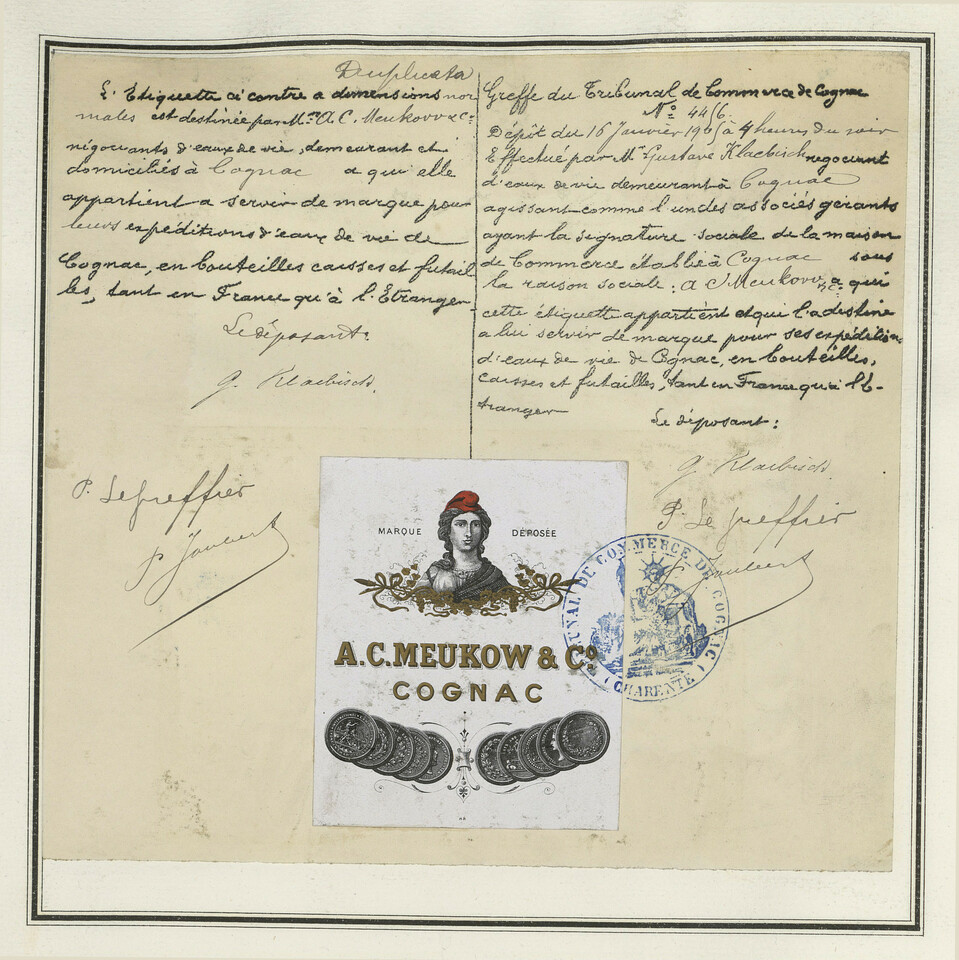 Duplicata
L'Etiquette ci contre a dimensions nor
males est destinée par Mrs A. C. Meukow & Co
négociants d'eaux de vie, demeurant et
domiciliés à Cognac a qui elle
appartient a servir de marque pour
leurs expéditions d'eaux de vie de
Cognac, en bouteilles caisses et futail
les, tant en France qu'à l'Etranger
Le déposant:
G. Klaebisch.
P. Le greffier
P Joubert
Greffe du Tribunal de Commerce de Cognac
No 4456.
Dépôt du 16 Janvier à 4 heures du soir
Effectué par Mr Gustave Klaebisch negociant
d'eaux de vie demeurant à Cognac
agissant comme l'un des associés gérants
ayant la signature sociale de la maison
de Commerce établie à Cognac sous
la raison sociale: A C Meukow & Co a qui
cette étiquette appartient et qui l'a destine
a lui servir de marque pour ses expédition
d'eaux de vie de Cognac, en bouteilles,
caisses et futailles, tant en France qu'a l'E-
tranger
Le déposant:
G Klaebisch
P. Le greffier
P Joubert
MARQUE DÉPOSÉE
A.C. MEUKOW & Co.
COGNAC
TRIBUNAL DE COMMERCE DE COGNAC
(CHARENTE)